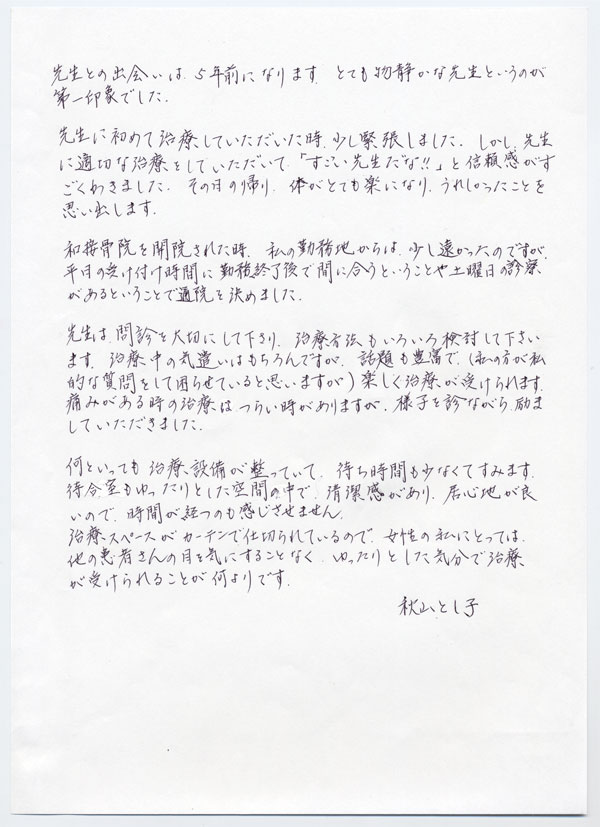 先生との出会いは、5年前になります。とても物静かな先生というのが
第一印象でした。
先生に初めて治療していただいた時、少し緊張しました。しかし、先生
に適切な治療をしていただいて、「すごい先生だな!!」と信頼感がす
ごくわきました。その日の帰り、体がとても楽になり、うれしかったことを
思い出します。
和接骨院を開院された時、私の勤務地からは、少し遠かったのですが、
平日の受け付け時間に勤務終了後で間に合うということや土曜日の診療
があるということで通院を決めました。
先生は、問診を大切にして下さり、治療方法もいろいろ検討して下さい
ます。治療中の気遣いはもちろんですが、話題も豊富で、(私の方が私
的な質問をして困らせていると思いますが)楽しく治療が受けられます。
痛みがある時の治療は、つらい時がありますが、様子を診ながら、励ま
していただきました。
何といっても治療、設備が整っていて、待ち時間も少なくてすみます。
待合室もゆったりとした空間の中で、清潔感があり、居心地が良
いので、時間が経つのも感じさせません。
治療スペースがカーテンで仕切られているので、女性の私にとっては、
他の患者さんの目を気にすることなく、ゆったりとした気分で治療
が受けられることが何よりです。
秋山とし子